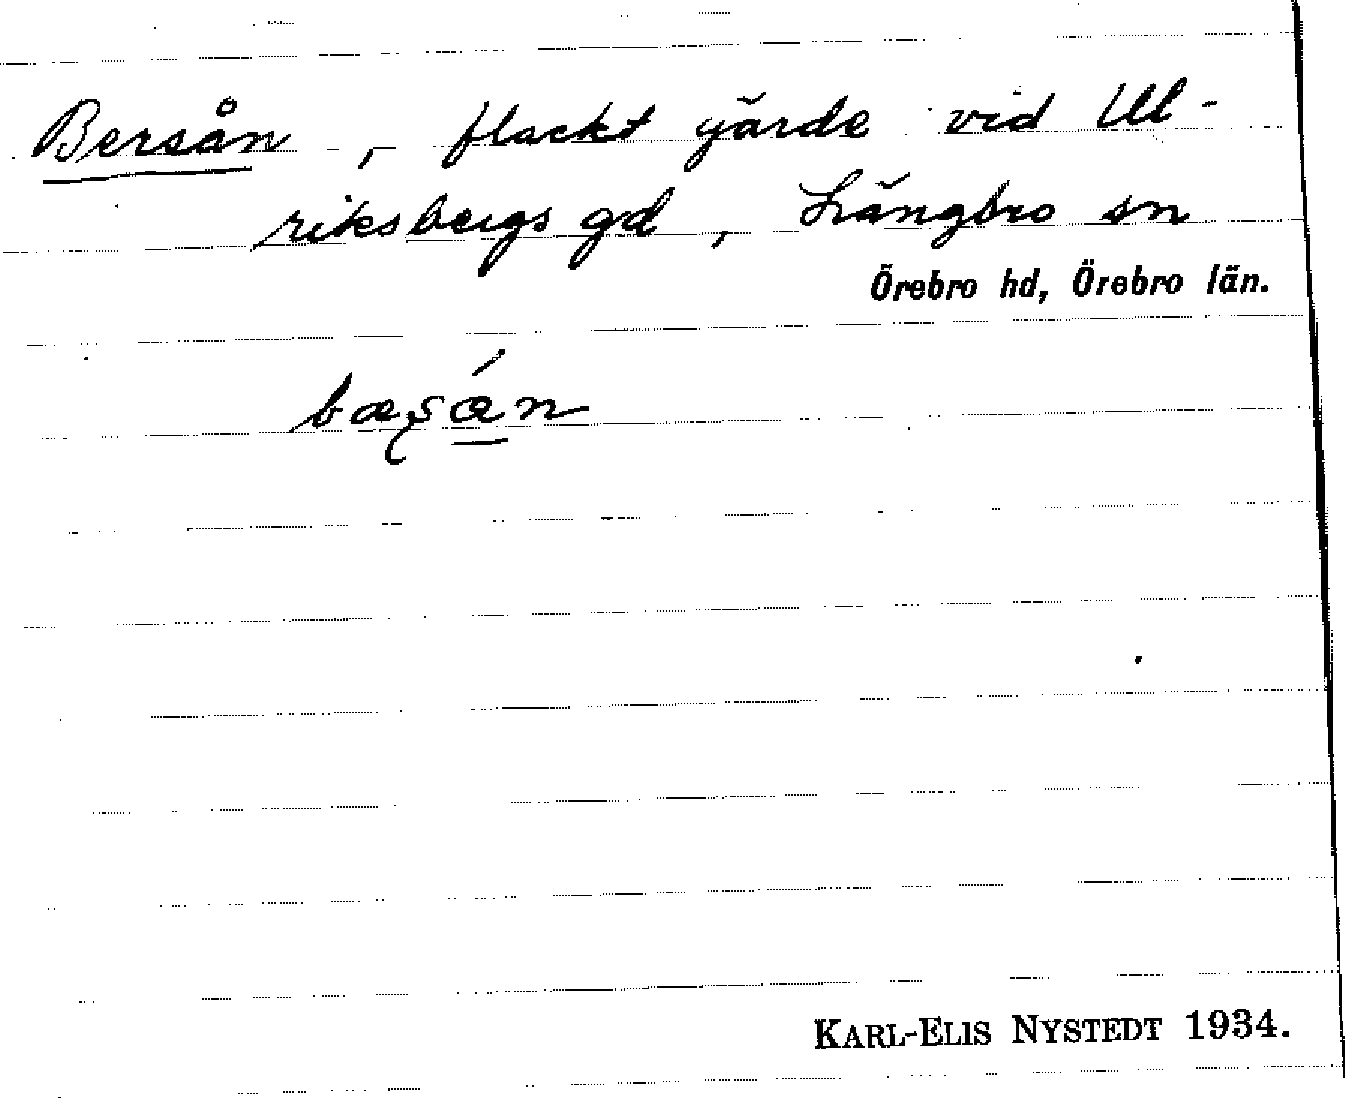 Bersån, flackt gärde vid Ul-
riksbergs gd, Längbro sn
Örebro hd, Örebro län.
KARL-ELIS NYSTEDT 1934.